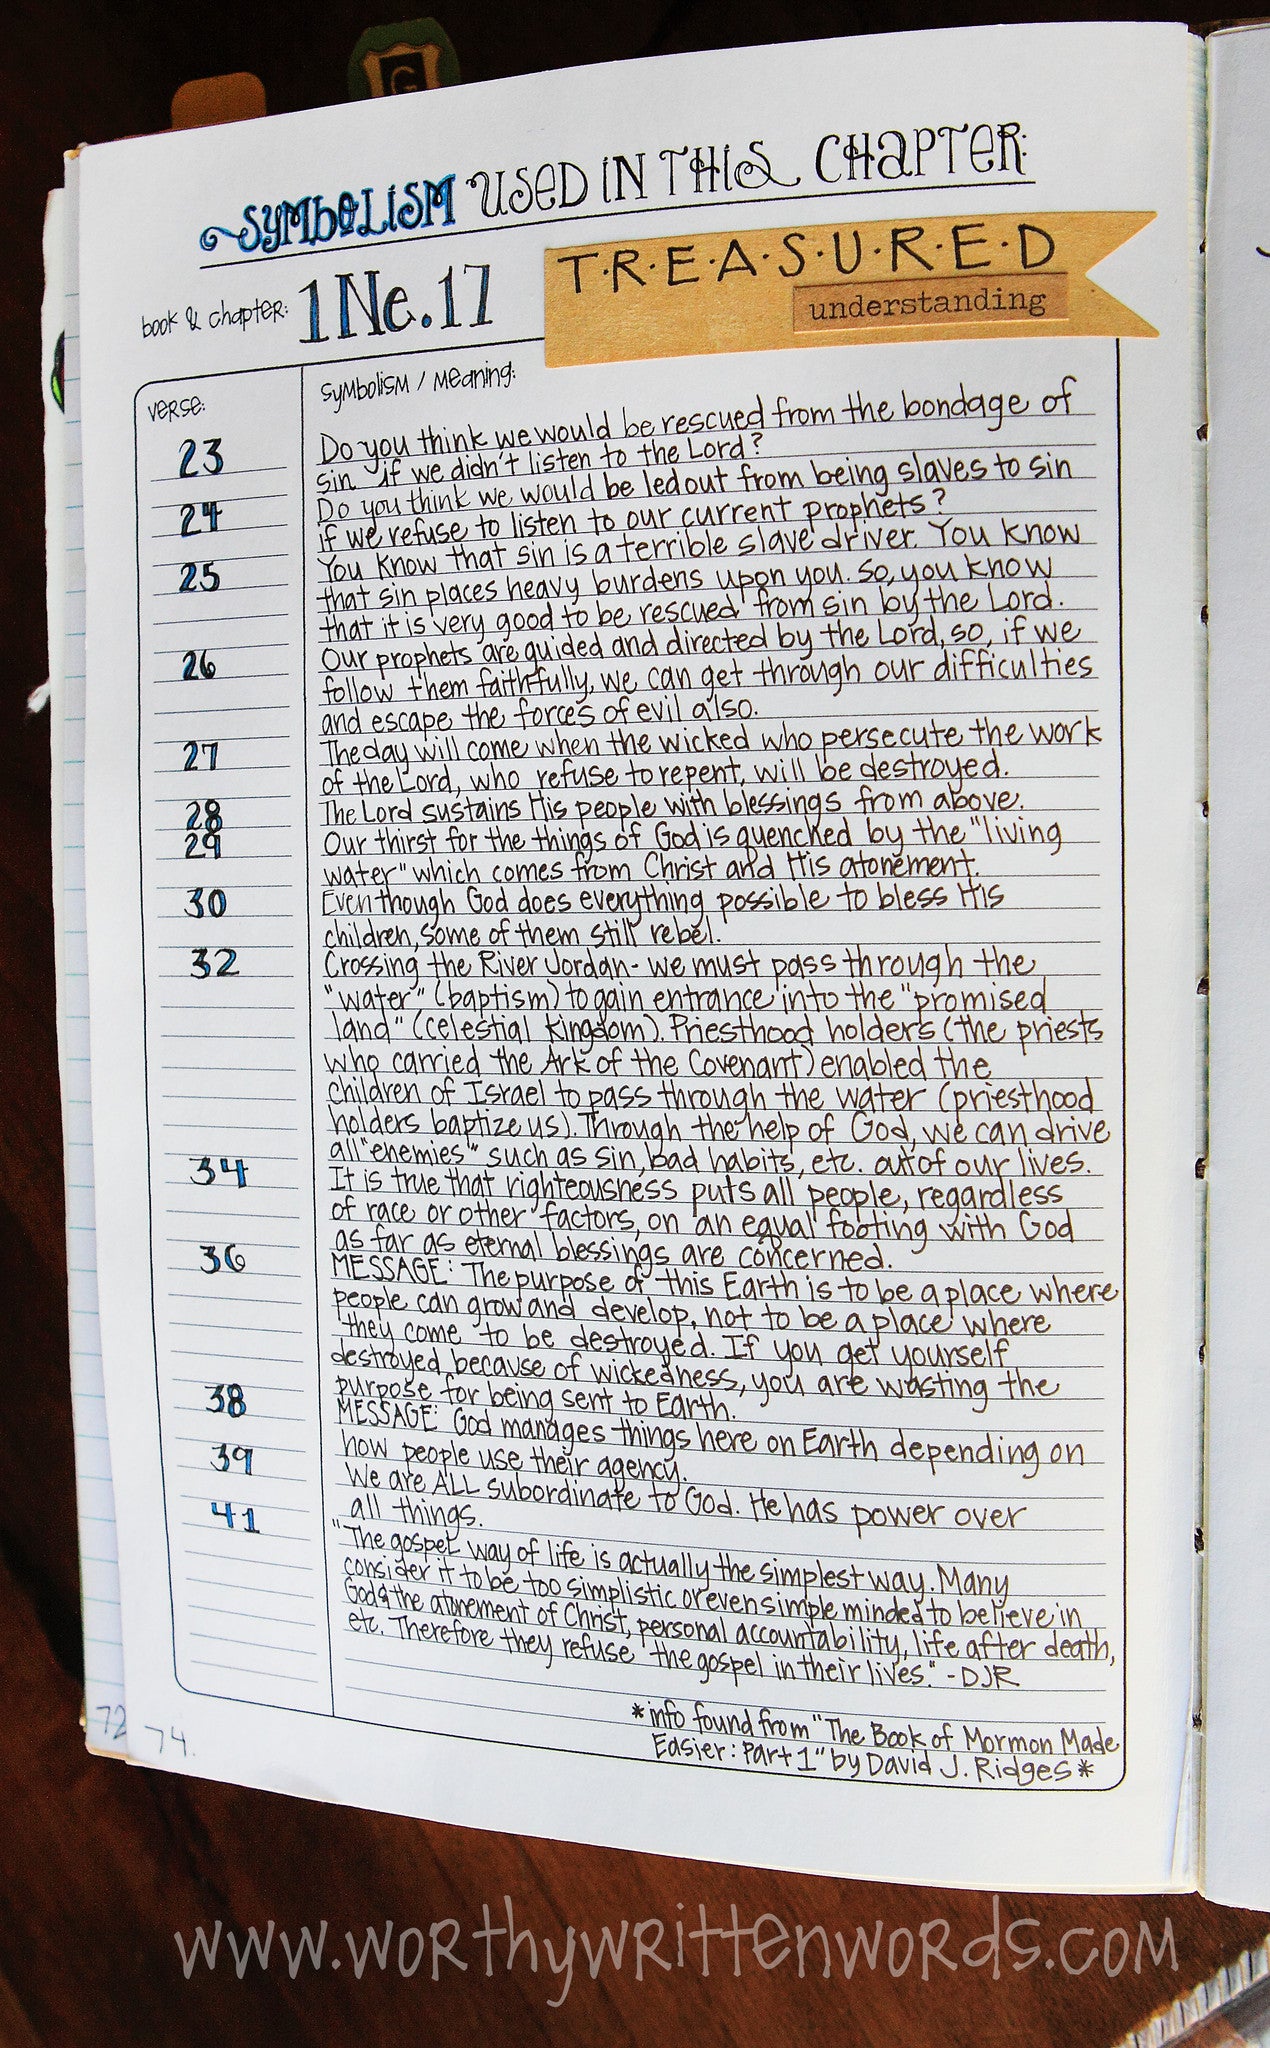 G
SYMBOLISM USED IN THIS CHAPTER:
book & chapter: 1 Ne. 17
T·R·E·A·S·U·R·E·D
understanding
verse:
symbolism / meaning:
23 Do you think we would be rescued from the bondage of
sin if we didn't listen to the Lord?
24 Do you think we would be led out from being slaves to sin
if we refuse to listen to our current prophets?
25 You know that sin is a terrible slave driver. You know
that sin places heavy burdens upon you. So, you know
that it is very good to be rescued from sin by the Lord.
26 Our prophets are guided and directed by the Lord, so, if we
follow them faithfully, we can get through our difficulties
and escape the forces of evil also.
27 The day will come when the wicked who persecute the work
of the Lord, who refuse to repent, will be destroyed.
28 The Lord sustains His people with blessings from above.
29 Our thirst for the things of God is quenched by the "living
water" which comes from Christ and His atonement.
30 Even though God does everything possible to bless His
children, some of them still rebel.
32 Crossing the River Jordan - we must pass through the
"water" (baptism) to gain entrance into the "promised
land" (celestial kingdom). Priesthood holders (the priests
who carried the Ark of the Covenant) enabled the
children of Israel to pass through the water (priesthood
holders baptize us). Through the help of God, we can drive
all "enemies" such as sin, bad habits, etc. out of our lives.
34 It is true that righteousness puts all people, regardless
of race or other factors, on an equal footing with God
as far as eternal blessings are concerned.
36 MESSAGE: The purpose of this Earth is to be a place where
people can grow and develop, not to be a place where
they come to be destroyed. If you get yourself
destroyed because of wickedness, you are wasting the
purpose for being sent to Earth.
38 MESSAGE: God manages things here on Earth depending on
how people use their agency.
39 We are ALL subordinate to God. He has power over
all things.
41 "The gospel way of life is actually the simplest way. Many
consider it to be too simplistic or even simple minded to believe in
God & the atonement of Christ, personal accountability, life after death,
etc. Therefore they refuse the gospel in their lives." - DJR
*info found from "The Book of Mormon Made
Easier: Part 1" by David J. Ridges*
72
74.
www.worthywrittenwords.com